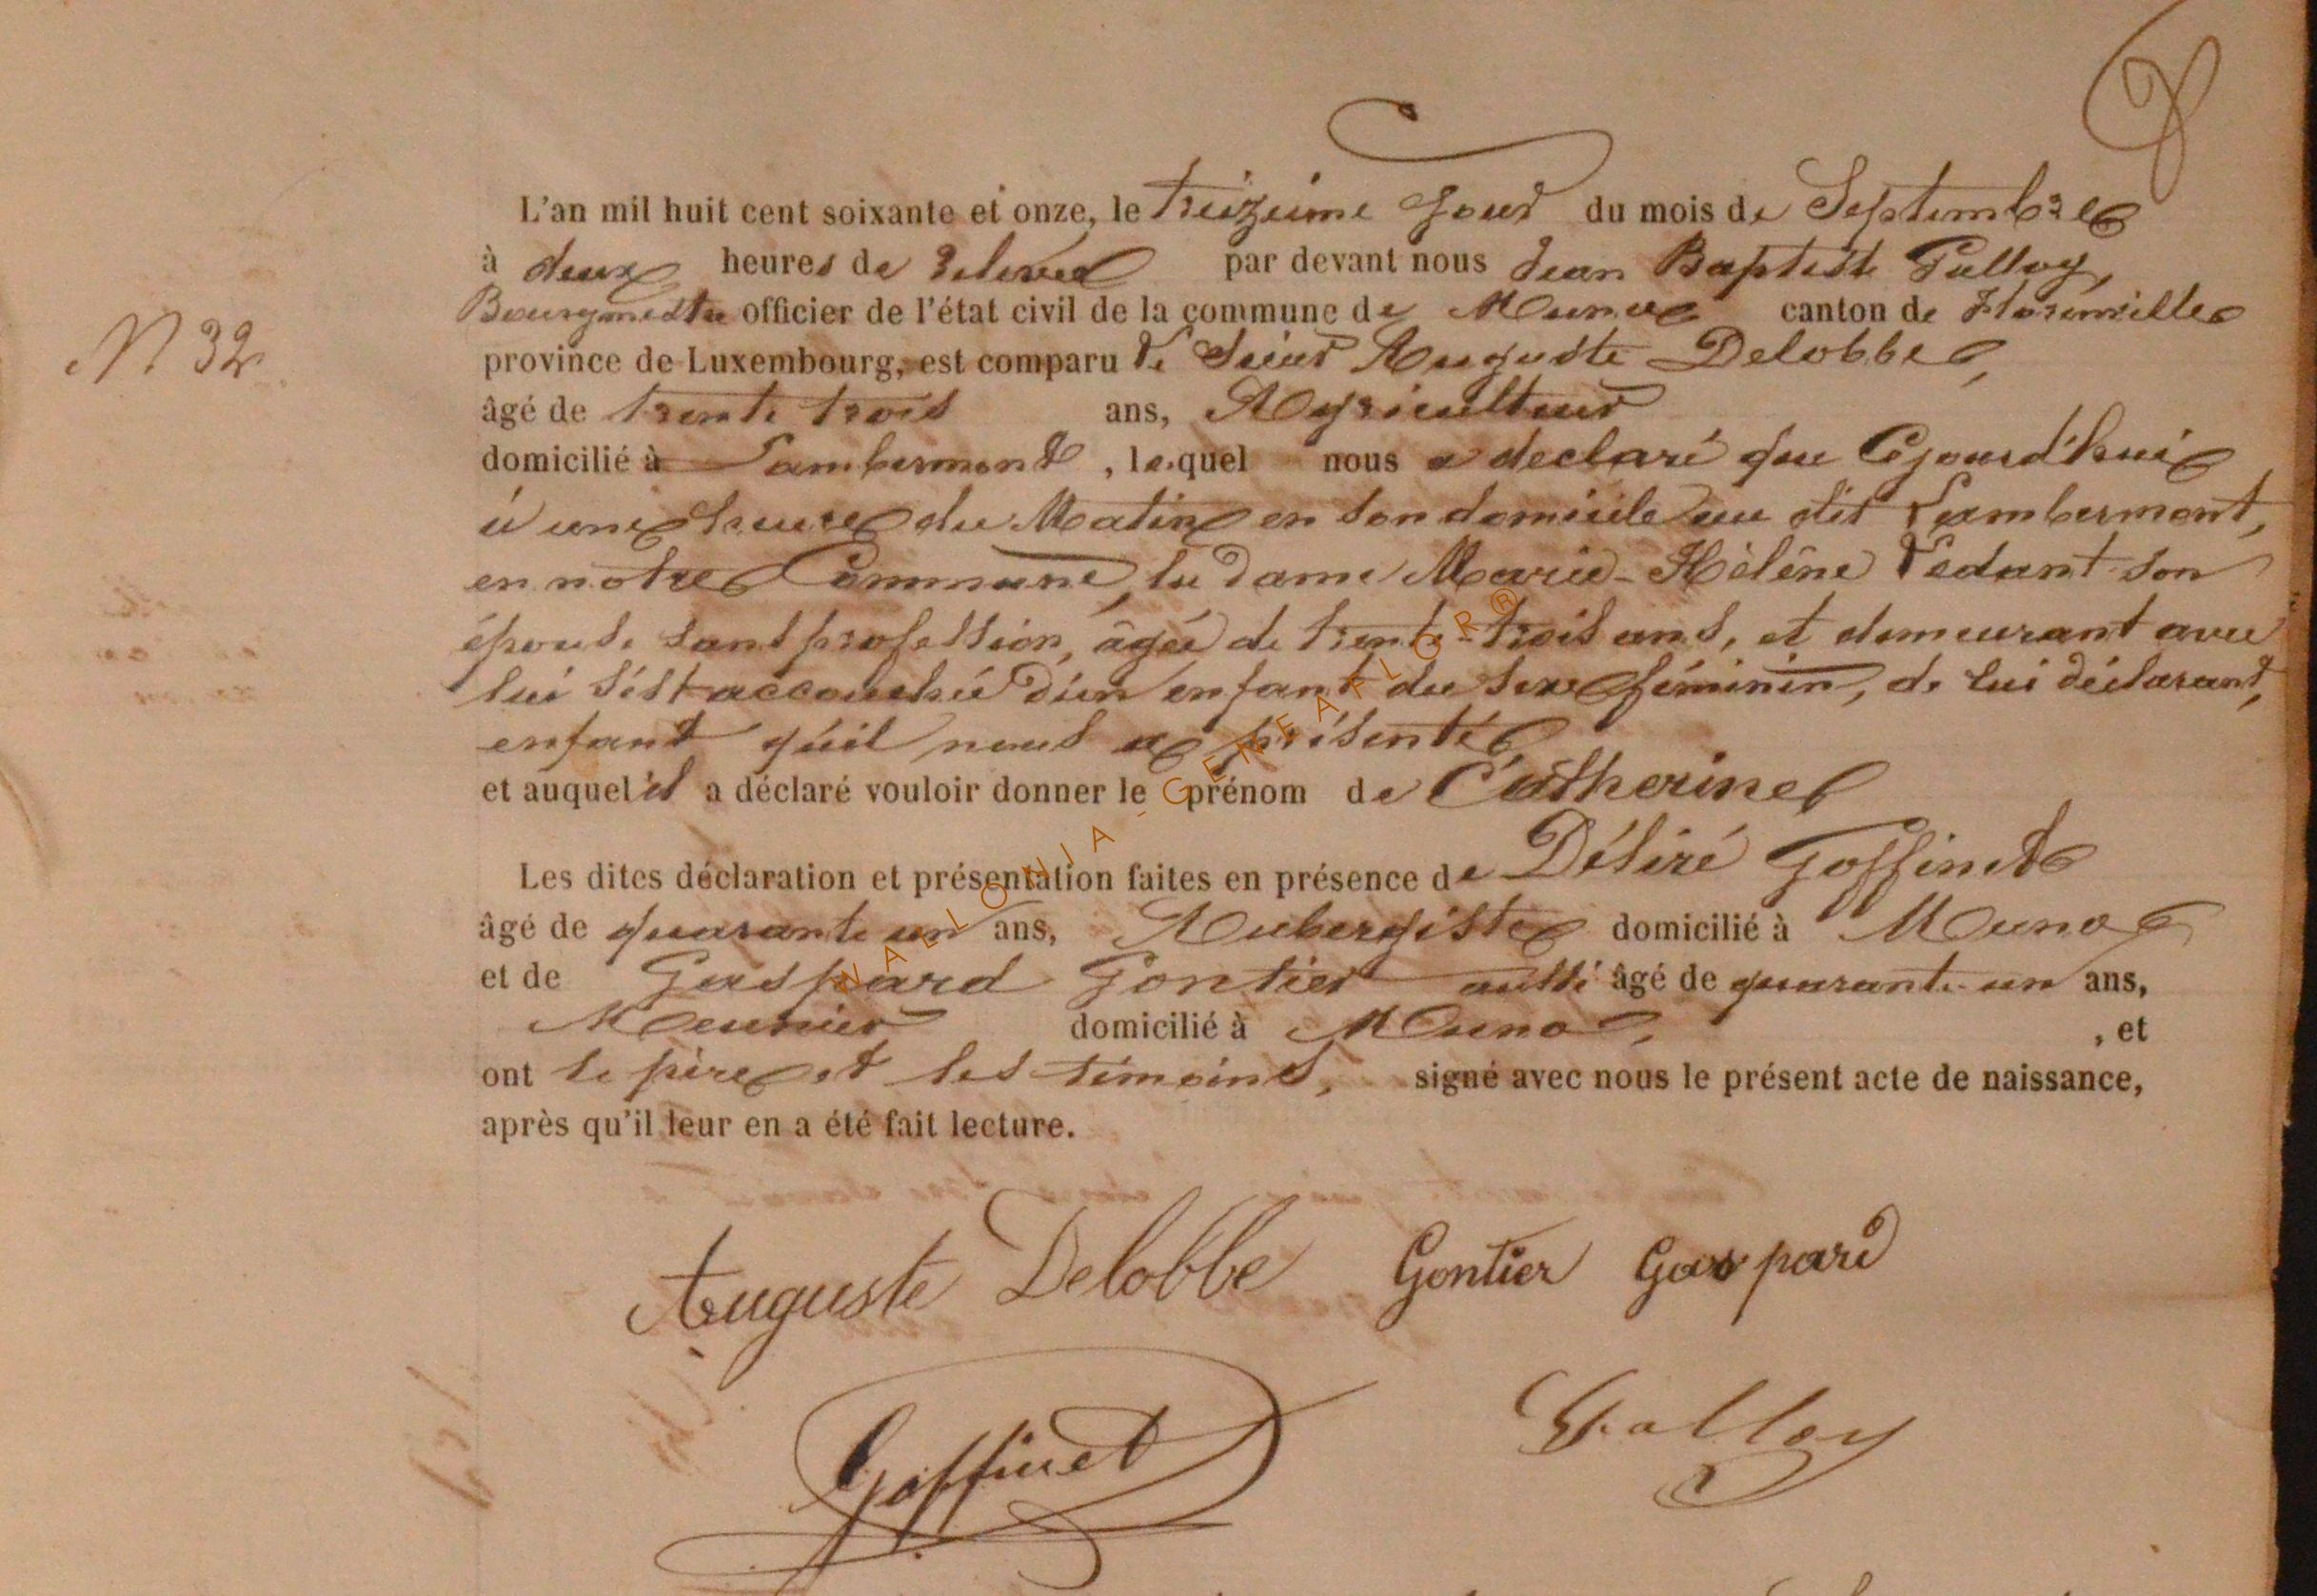 L'an mil huit cent soixante et onze, le treizième jour du mois de Septembre
à deux heures de relevé par devant nous Jean Baptiste Galloy,
Bourgmestre officier de l'état civil de la commune de Muno canton de Florenville
N 32
province de Luxembourg, est comparu le Sieur Auguste Delobbe,
âgé de trente trois ans, Agriculteur
domicilié à Lambermont, lequel nous a declaré que Cejourd'hui
à une heure du Matin en son domicile au dit Lambermont,
en notre Commune, la dame Marie-Hélène Pedant son
épouse sans profession, âgée de trente-trois ans, et demeurant avec
lui s'est accouchée d'un enfant du sexe féminin, de lui déclarant,
enfant qu'il nous a présenté
et auquel il a déclaré vouloir donner le prénom de Catherine
Les dites déclaration et présentation faites en présence de Désiré Goffinet
âgé de quarante un ans, Aubergiste domicilié à Muno
et de Gaspard Gontier aussi âgé de quarante-un ans,
Meunier domicilié à Muno, , et
ont le père et les témoins, signé avec nous le présent acte de naissance,
après qu'il leur en a été fait lecture.
Auguste Delobbe Gontier Gaspard
Goffinet Galloy
WALLONIA - GENEALOR®